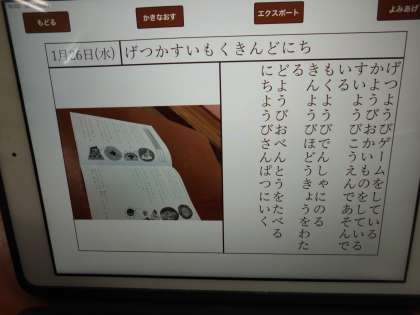 もどる
かきなおす
エクスポート
よみあげ
1月26日(水)
げつかすいもくきんどにち
げつようびゲームをしている
かようびおかいものをしている
すいようびこうえんであそんで
いる
もくようびでんしゃにのる
きんようびほどうきょうをわた
る
どようびおべんとうをたべる
にちようびさんぱつにいく